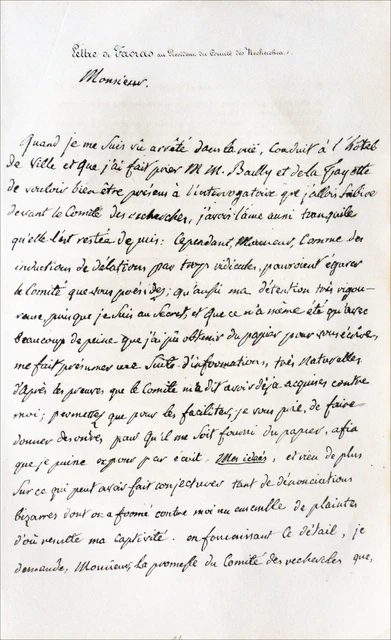 Lettre de Favras au Président du Comité des Recherches.
Monsieur.
Quand je me suis vû arrêté dans la rue, conduit à l'hôtel
de Ville et que j'ai fait prier MM. Bailly et de la Fayette
de vouloir bien être présens à l'interrogatoire que j'allois subire
devant le Comité des recherches, j'avois l'ame aussi tranquile
qu'elle l'est restée depuis: Cependant, Monsieur, comme des
inductions de délations par trop ridicules, pourroient égarer
le Comité que vous présidez; qu'aussi ma détention très rigou-
reuse, puisque je suis au secret, et que ce n'a même été qu'avec
beaucoup de peine que j'ai pû obtenir du papier pour vous écrire,
me fait présumer une suite d'informations, très naturelles
d'après les preuves que le Comité m'a dit avoir déja acquises contre
moi; permettez que pour les faciliter, je vous prie, de faire
donner des ordres pour qu'il me soit fourni du papier, afin
que je puisse exposer par écrit, Mes idées, et rien de plus
sur ce qui peut avoir fait conjecturer tant de dénonciations
bizarres dont on a formé contre moi un ensemble de plaintes
d'où resulte ma captivité. en fournissant ce détail, je
demande, Monsieur, la promesse du Comité des recherches que,